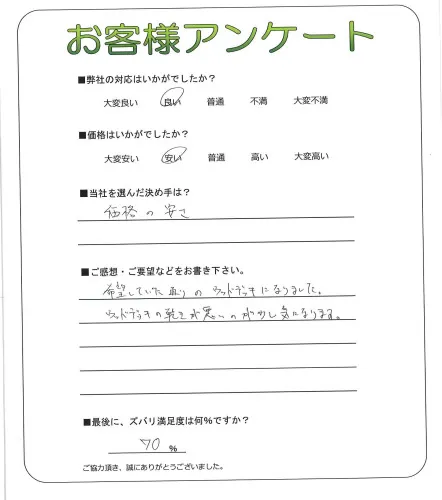 お客様アンケート
■弊社の対応はいかがでしたか？
大変良い 良い 普通 不満 大変不満
■価格はいかがでしたか？
大変安い 安い 普通 高い 大変高い
■当社を選んだ決め手は？
価格の安さ
■ご感想・ご要望などをお書き下さい。
希望していた通りのウッドデッキになりました。
ウッドデッキの乾きが悪いのが少し気になります。
■最後に、ズバリ満足度は何%ですか？
70 %
ご協力頂き、誠にありがとうございました。